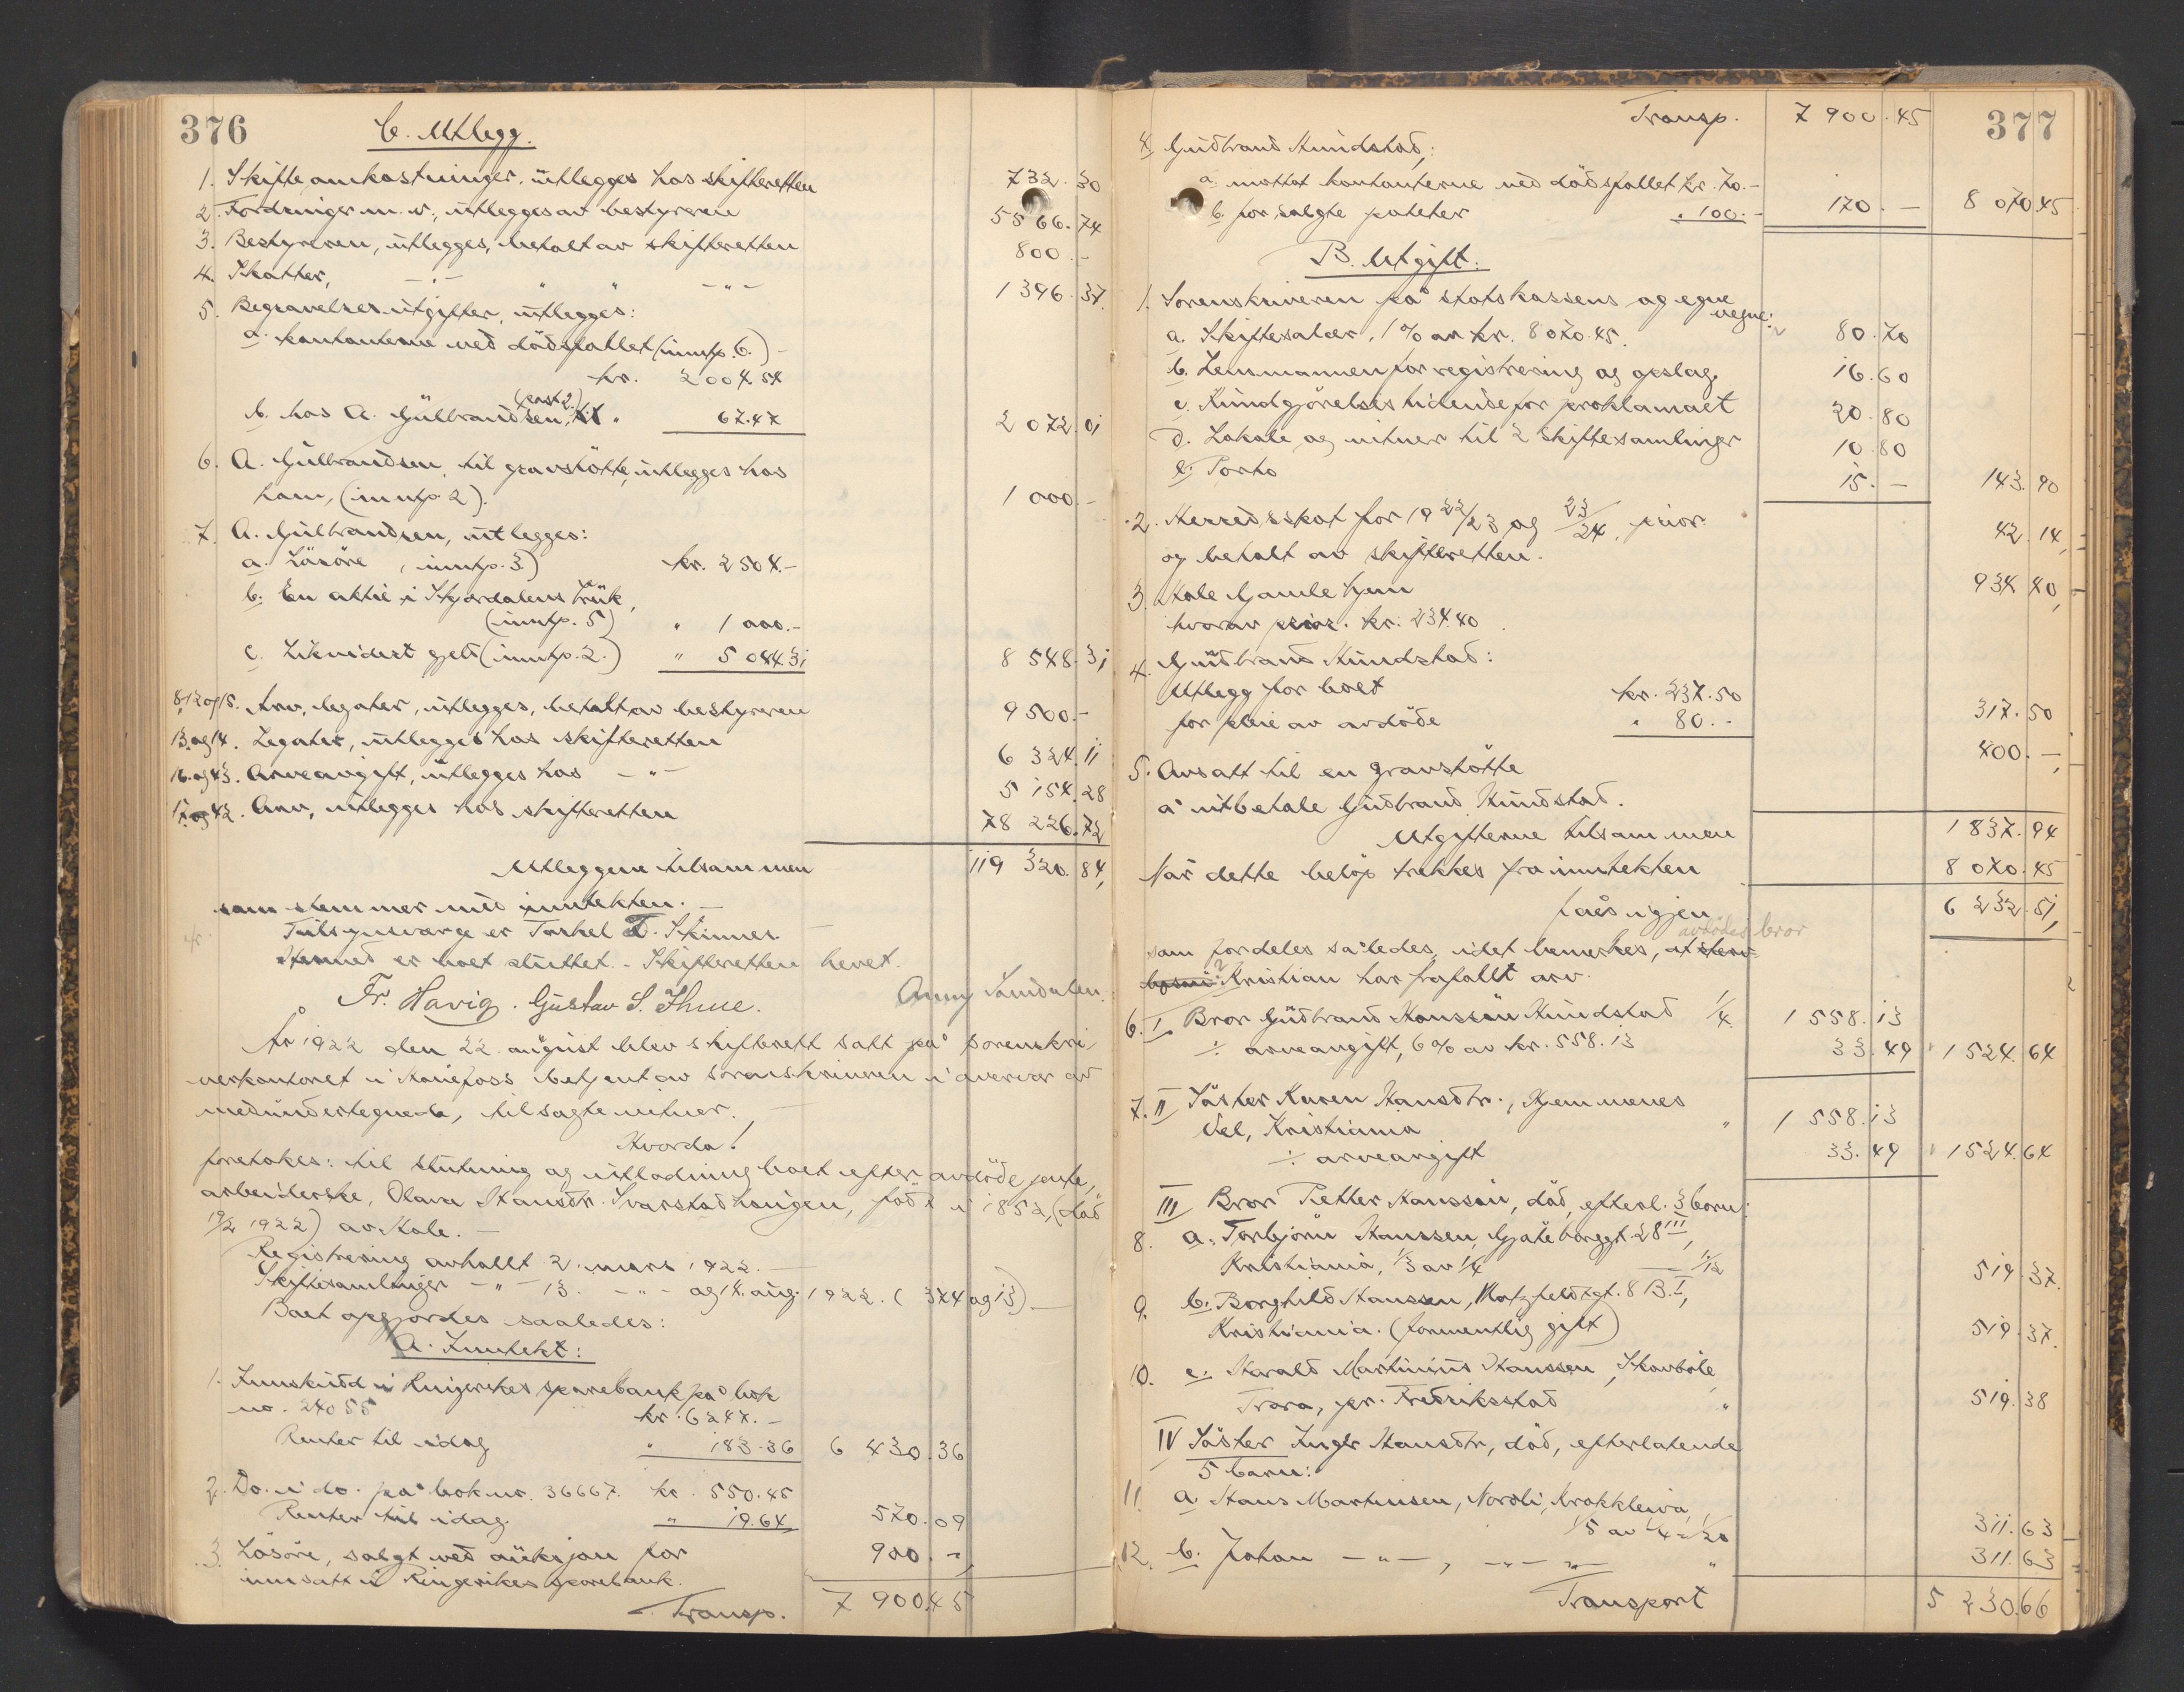 376
C. Utlegg.
1. Skifteomkostninger, utlegges hos skifteretten 732.30
2. Fordringer m. v., utlegges av bestyreren 5566.74
3. Bestyreren, utlegges, betalt av skifteretten 800.-
4. Skatter, -"- " " -"- 1396.37.
5. Begravelsesutgifter, utlegges:
a. kontanterne ved dødsfallet (inntp. 6.)
kr. 2004.54
b. hos A. Gulbrandsen, (post 2.) " 67.47 2072.01
6. A. Gulbrandsen, til gravstøtte, utlegges hos
ham, (inntp. 2). 1000.-
7. A. Gulbrandsen, utlegges:
a. Løsøre, inntp. 3) kr. 2504.-
b. En aktie i Skjærdalens Bruk,
(inntp. 5) " 1000.-
c. Likvidert gjeld (inntp. 2.) " 5044.31 8548.31
8, 12 og 15. Arv, legater, utlegges, betalt av bestyreren 9500.-
13. og 14. Legater, utlegges hos skifteretten 6324.11
16. og 43. Arveavgift, utlegges hos -"- 5154.28
17. og 42. Arv, utlegges hos skifteretten 78226.72
Utleggene tilsammen 119320.84,
som stemmer med inntekten. -
Tilsynsverge er Torkel T. Skinnes.
Hermed er boet sluttet. - Skifteretten hevet.
Fr. Havig. Gustav S. Thue. Anny Sandalen.
År 1922 den 22. august blev skifterett satt på sorenskri-
verkontoret i Hønefoss betjent av sorenskriveren i overvær av
medundertegnede, tilsagte vitner. -
Hvorda!
foretokes: til slutning og utlodning boet efter avdøde jente,
arbeiderske, Olava Hansdtr. Svarstadhaugen, født i 1852, (død
19/2 1922) av Hole. -
Registrering avholt 2. mars 1922. -
Skiftesamlinger -"- 13. -"- og 14. aug. 1922. (374 og 13). -
Boet opgjordes saaledes:
A. Inntekt:
1. Innskudd i Ringerikes sparebank på bok
no. 24055 kr. 6247.-
Renter til idag " 183.36 6430.36
2. Do. i do. på bok nr. 36667. kr. 550.45
Renter til idag " 19.64 570.09
3. Løsøre, solgt ved auksjon for 900.-,
innsatt i Ringerikes sparebank.
Transp. 7900.45
377
Transp. 7900.45
4. Gudbrand Hundstad:
a. mottat kontanterne ved dødsfallet kr. 70.-
b. for solgte poteter " 100.- 170.- 8070.45
B. Utgift:
1. Sorenskriveren på statskassens og egne
vegne:
a. Skiftesalær, 1% av kr. 8070.45. 80.70
b. Lensmannen for registrering og opslag. 16.60
c. Kundgjørelsestidende for proklamaet 20.80
d. Lokale og vitner til 2 skiftesamlinger 10.80
e. Porto 15.- 143.90
2. Herredsskat for 1922/23 og 23/24, prior.
og betalt av skifteretten. 42.14,
3. Hole Gamlehjem 934.40,
hvorav prior. kr. 234.40.
4. Gudbrand Hundstad:
Utlegg for boet kr. 237.50
for pleie av avdøde " 80.- 317.50
5. Avsatt til en gravstøtte 400.-,
å utbetale Gudbrand Hundstad.
Utgifterne tilsammen 1837.94
Når dette beløp trekkes fra inntekten 8070.45
fåes igjen 6232.51,
avdødes bror
som fordeles således, idet bemerkes, at
Kristian har frafallt arv.
6. I Bror Gudbrand Hanssøn Hundstad 1/4. 1558.13
÷ arveavgift, 6% av kr. 558.13 33.49 1524.64
7. II Søster Karen Hansdtr., Hjemmenes
Vel, Kristiania " 1558.13
÷ arveavgift 33.49 1524.64
III Bror Petter Hanssøn, død, efterl. 3 barn:
8. a. Torbjørn Hanssen, Gøteborggt. 28 III,
Kristiania, 1/3 av 1/4 1/12 519.37.
9. b. Borghild Hanssen, Hatzfeldtgt. 8 B. I,
Kristiania. (formentlig gift) 519.37.
10. c. Harald Martinius Hanssen, Skovbøle,
Trara, pr. Fredriksstad " 519.38
IV Søster Inger Hansdtr, død, efterlatende
5 barn:
11. a. Hans Martinsen, Nordli, Krokkleiva,
1/5 av 1/4 = 1/20 311.63
12. b. Johan -"-, -"- " 311.63
Transport 5230.66